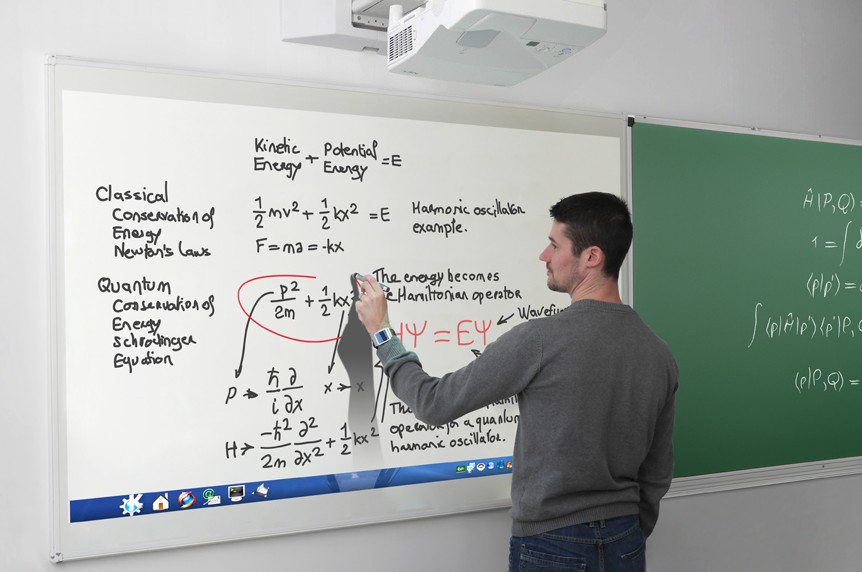 Kinetic Energy + Potential Energy = E
Classical
Conservation of
Energy
Newton's Laws
½mv² + ½kx² = E
F = ma = -kx
Harmonic oscillator
example.
Quantum
Conservation of
Energy
Schrodinger
Equation
p²/2m + ½kx²
The energy becomes
Hamiltonian operator
HΨ = EΨ
P → ħ/i ∂/∂x
x → x
H → -ħ²/2m ∂²/∂x² + ½kx²
operator for a quantum
harmonic oscillator.
Ĥ|P,Q⟩ =
1 = ∫
⟨p|p'⟩ =
∫⟨p|Ĥ|p'⟩⟨p'|P,
⟨p|P,Q⟩ =